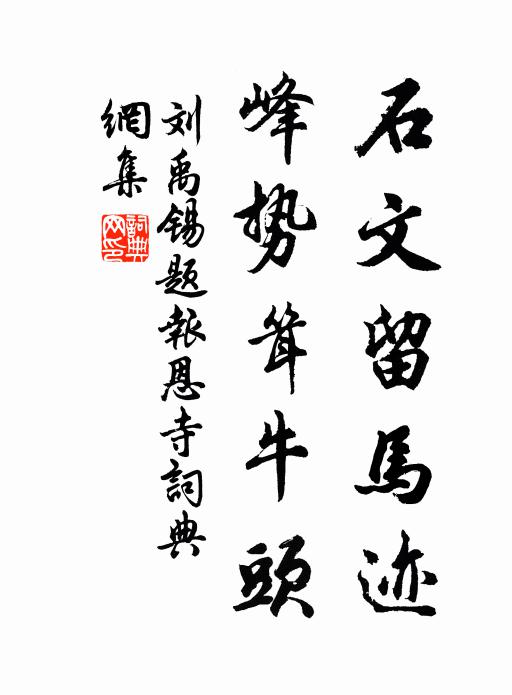 石文留馬迹
峰势耸牛頭
刘禹锡题報恩寺詞典
網集
詞典
网印